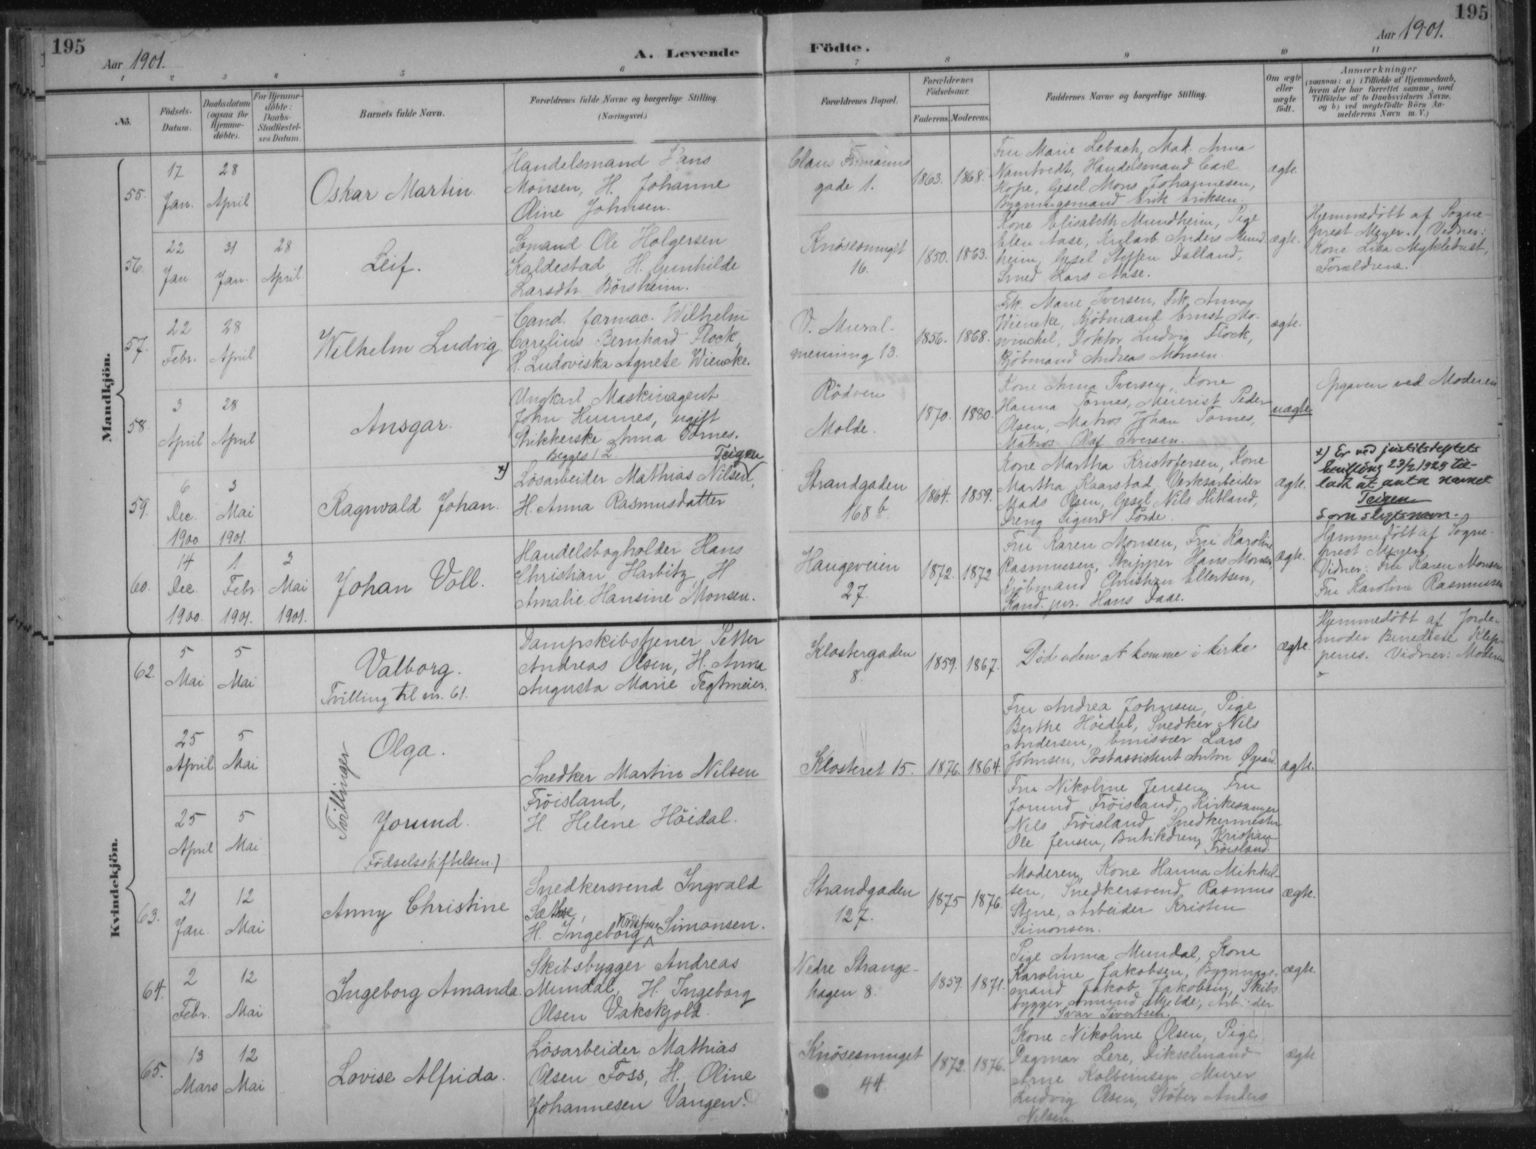 195
195
Aar 1901.
A. Levende
Födte.
Aar 1901.
1 2 3 4 5 6 7 8 9 10 11
No.
Födsels-Datum.
Daabsdatum (ogsaa for Hjemmedöbte).
For Hjemmedöbte: Daabs Stadfæstelses Datum.
Barnets fulde Navn.
Forældrenes fulde Navne og borgerlige Stilling. (Næringsvei)
Forældrenes Bopæl.
Forældrenes Födselsaar.
Faderens. Moderens.
Faddernes Navne og borgerlige Stilling.
Om ægte eller uægte födt.
Anmærkninger
Mandkjön.
55.
17 Jan.
28 April
Oskar Martin
Handelsmand Hans
Monsen, H. Johanne
Oline Johnsen.
gade 1.
1863. 1868.
Fru Marie Lebach, Mad. Anna
Namtvedt, Handelsmand Carl
Kope, Gesel Mons Johannesen,
Bygningsmand Erik Eriksen.
ægte.
56.
22 Jan
31 Jan.
28 April
Leif.
Lomand Ole Holgersen
Kaldestad H. Gunhilde
Larsdtr Börsheim.
Knösesmuget
16.
1850. 1863.
Kone Elisabeth Mundheim, Pige
Elen Aase, Anders Mund
heim, Gesel Steffen Dalland,
Smed Lars Aase.
ægte.
Hjemmedöbt af Sogne-
prest Meyer. Vidner:
Kone Lisa Myklebust,
Forældrene.
57.
22 Febr.
28 April
Wilhelm Ludvig
Cand. farmac. Wilhelm
Carelius Bernhard Flock,
H. Ludoviska Agnete Wiencke.
V. Mural-
menning 13.
1856. 1868.
Frk. Marie Iversen, Frk. Anna
Wiencke, Kjöbmand Ernst Mo-
winckel, Doktor Ludvig Flock,
Kjöbmand Andreas Monsen
ægte.
58.
3 April
28 April
Ansgar.
Ungkarl Maskinagent
John Hunnes, ugift
Strikkerske Anna Tornes.
Begges 1 L.
Rödven
Molde.
1870. 1880.
Kone Anna Iversen, Kone
Hanna Tornes, Meierist Peder
Olsen, Matros Johan Tornes,
Matros Olaf Iversen.
uægte
Opgaven ved Moderen
59.
6 Dec. 1900
3 Mai 1901.
Ragnvald Johan.
x)
Teigen
Lösarbeider Mathias Nilsen,
H. Anna Rasmusdatter
Strandgaden
168 b
1864. 1859.
Kone Martha Kristofersen, Kone
Martha Kaarstad, Verksarbeider
Mads Olsen, Gesel Nils Hetland,
Dreng Sigurd Förde.
ægte.
x) Er ved justitsdeptets
bevilling 23/2 1929 til-
ladt at anta navnet
Teigen
som slegtsnavn.
60.
14 Dec. 1900
1 Febr 1901.
3 Mai 1901.
Johan Voll.
Handelsbogholder Hans
Christian Harbitz, H
Amalie Hansine Monsen.
Haugeveien
27.
1872. 1872
Fru Karen Monsen, Fru Karoline
Rasmussen, Skipper Hans Monsen
Kjöbmand Christian Ellertsen,
Kand. jur. Hans Daae.
ægte.
Hjemmedöbt af Sogne-
prest Meyer,
Vidner: Fru Karen Monsen
Fru Karoline Rasmussen
Kvindekjön.
62.
5 Mai
5 Mai
Valborg.
Tvilling til nr. 61.
Dampskibstjener Petter
Andreas Olsen, H. Anna
Augusta Marie Tegtmeier.
Klostergaden
8
1859. 1867.
Död uden at komme i kirke
ægte.
Hjemmedöbt af Jorde-
moder Benedicte Klep-
penes. Vidner: Moderen
25 April
5 Mai
Tvillinger
Olga.
Snedker Martin Nilsen
Fröisland,
H. Helene Höidal.
Klosteret 15.
1876. 1864
Fru Andrea Johnsen, Pige
Berthe Höidal, Snedker Nils
Andersen, Emissær Lars
Johnsen, Postassistent Anton
ægte.
25 April
5 Mai
Jorund.
(Födselsstiftelsen.)
Fru Nikoline Jensen, Fru
Jorund Fröisland, Kirkesanger
Nils Fröisland, Snedkermester
Ole Jensen, Butikdreng Kristian
Fröisland
63.
21 Jan.
12 Mai
Anny Christine
Snedkersvend Ingvald
Sætre,
H. Ingeborg Simonsen.
Strandgaden
127.
1875 1876.
Moderen, Kone Hanna Mikkel
sen, Snedkersvend Rasmus
Stene, Arbeider Kristen
Simonsen.
ægte.
64.
2 Febr.
12 Mai
Ingeborg Amanda
Skibsbygger Andreas
Mundal, H. Ingeborg
Olsen Vakskjold.
Nedre Strange-
hagen 8.
1859. 1871.
Pige Anna Mundal, Kone
Karoline Jakobsen, Bygnings-
mand Jakob Jakobsen, Skibs
bygger Amund Mjelde, Arbeider
Ivar Sivertsen.
ægte
65.
13 Mars
12 Mai
Lovise Alfrida.
Lösarbeider Mathias
Olsen Foss, H. Oline
Johannesen Vangen.
Knösesmuget
44
1872. 1876.
Kone Nikoline Olsen, Pige
Dagmar Lere, Fikselmand
Arne Kolbeinsen, Murer
Ludvig Olsen, Stöber Anders
Nilsen
ægte